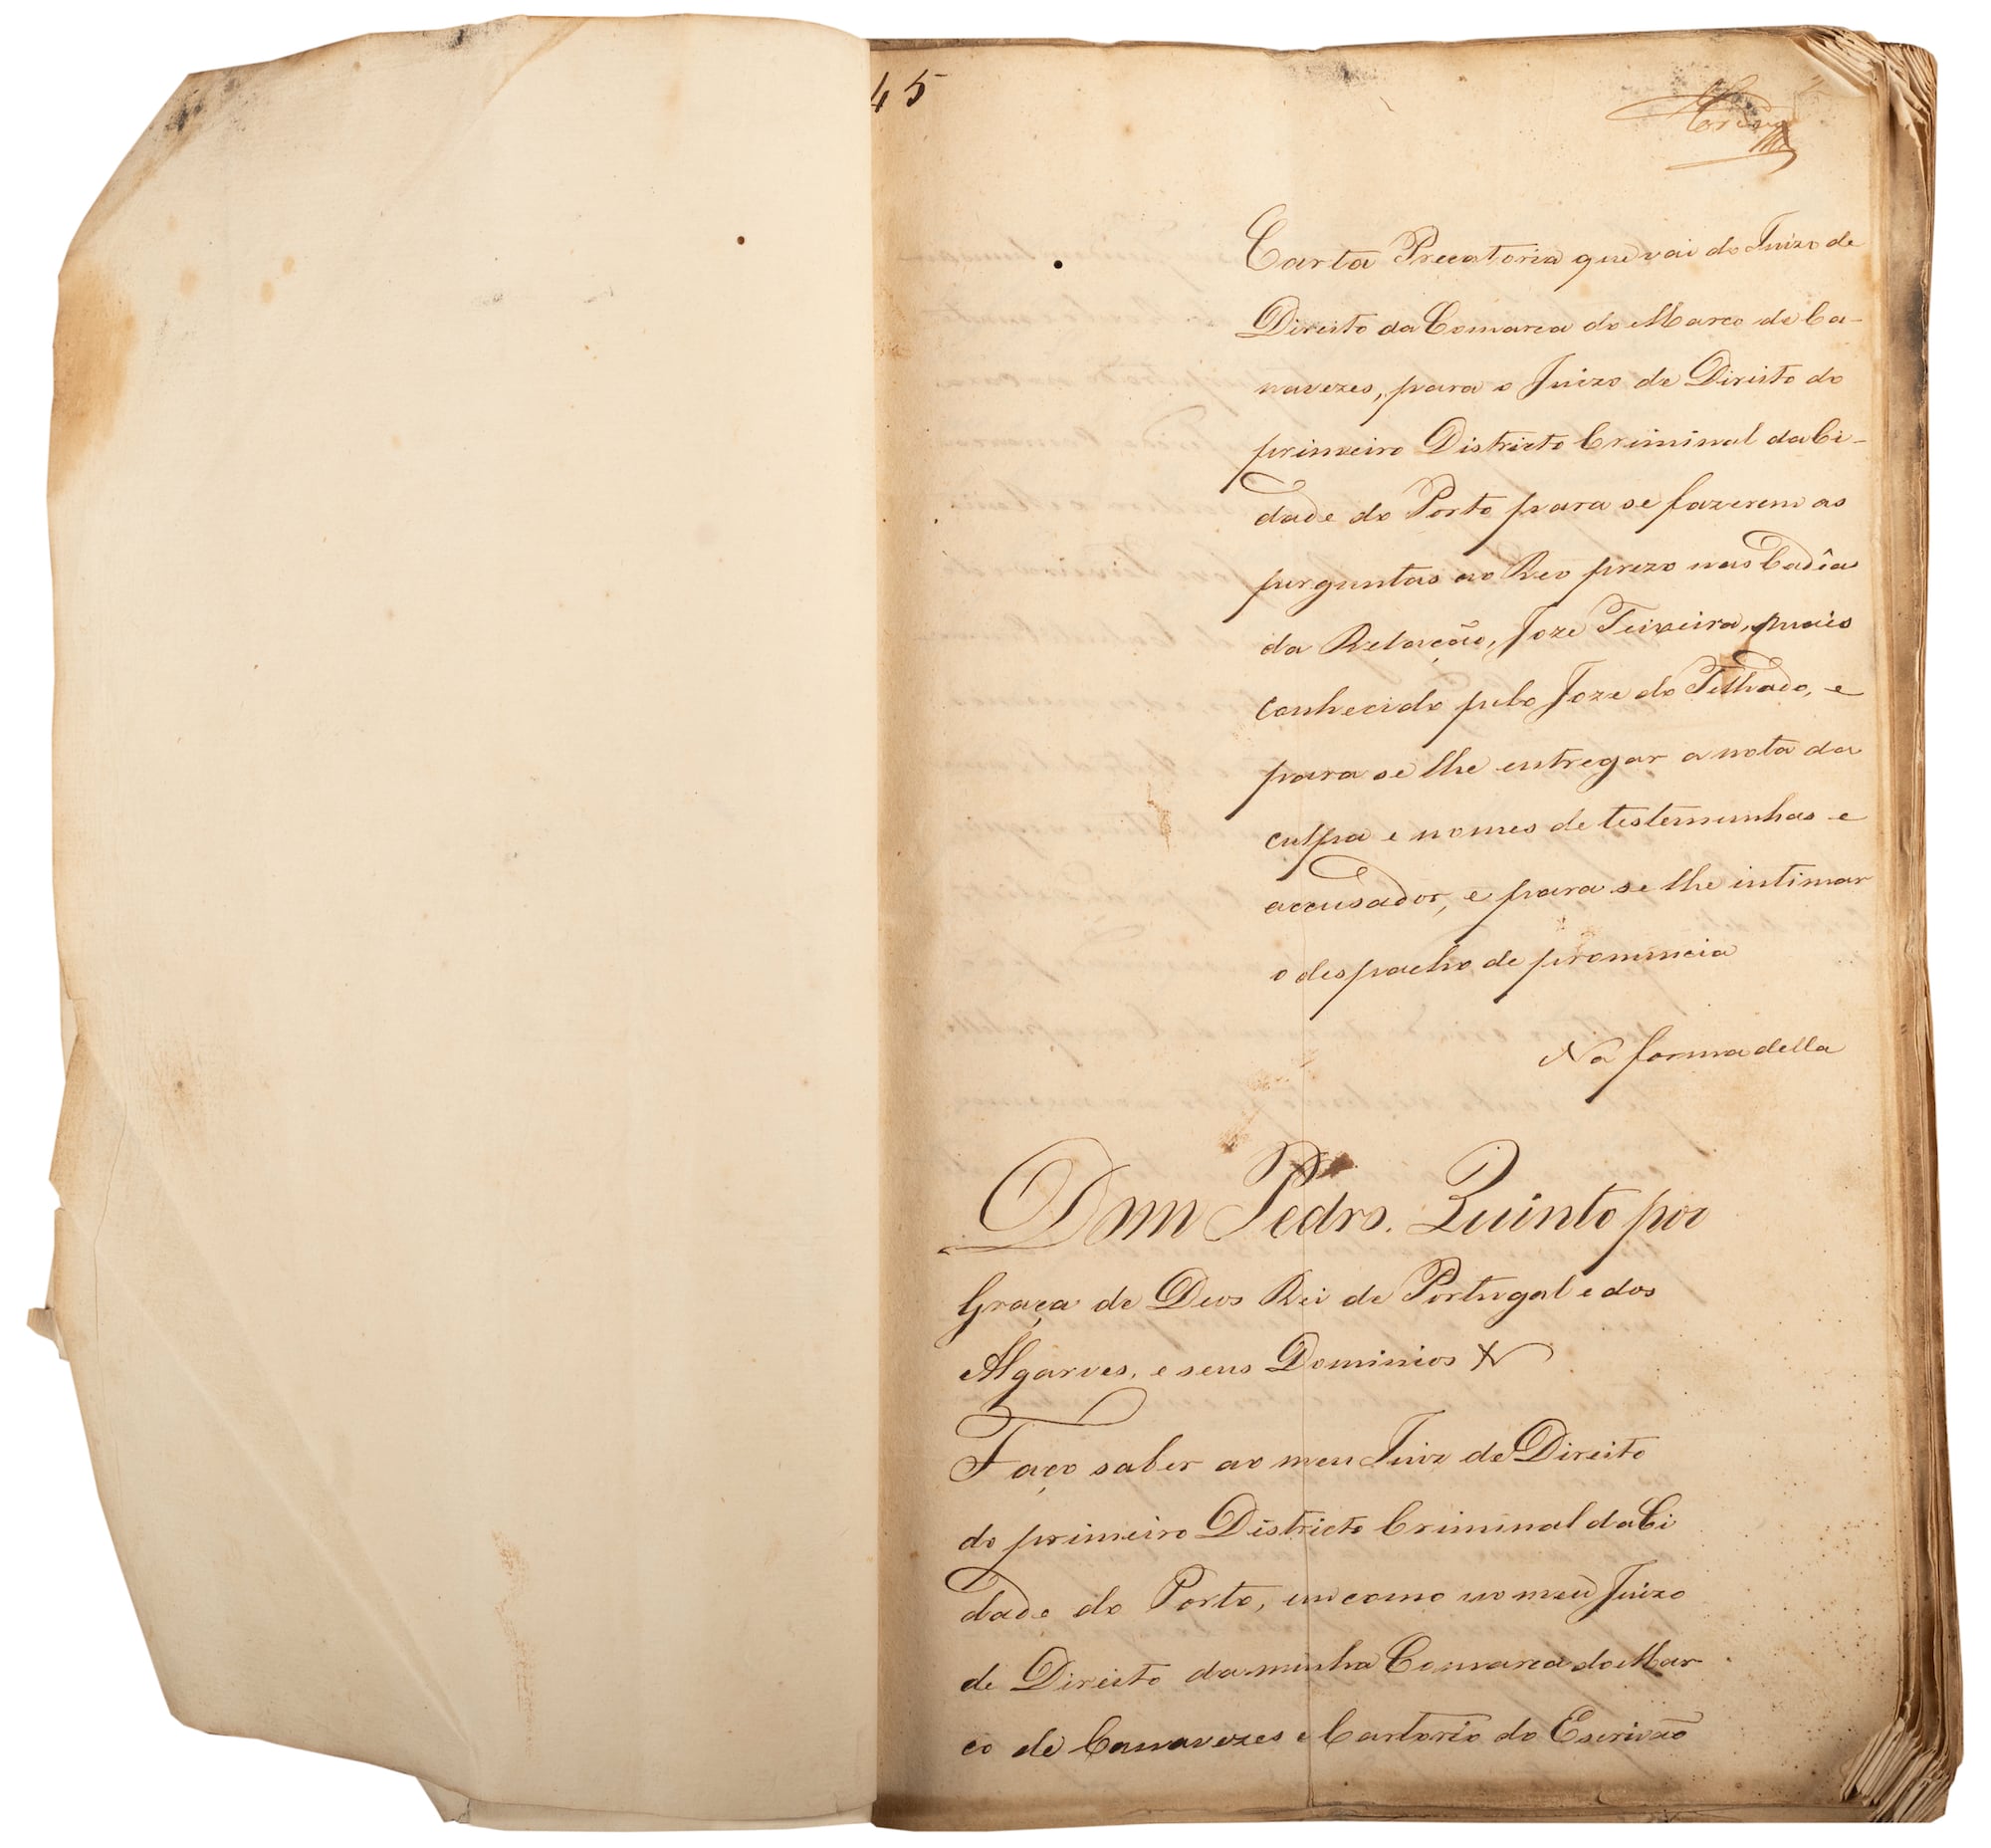 45
Carta Precatoria que vai do Juizo de
Direito da Comarca do Marco de Ca-
navezes, para o Juizo de Direito do
primeiro Districto Criminal da Ci-
dade do Porto para se fazerem as
perguntas ao Reo prezo nas Cadêas
da Relação, Joze Teixeira,
conhecido pelo Joze do Telhado, e
para se lhe entregar a nota da
culpa e nomes de testemunhas e
accusador, e para se lhe intimar
o despacho de pronuncia
Na forma della
Dom Pedro. Quinto por
Graça de Deos Rei de Portugal e dos
Algarves, e seus Dominios &
Faço saber ao meu Juiz de Direito
do primeiro Districto Criminal da Ci
dade do Porto, em como no meu Juizo
de Direito da minha Comarca do Mar
co de Canavezes e Cartorio do Escrivão